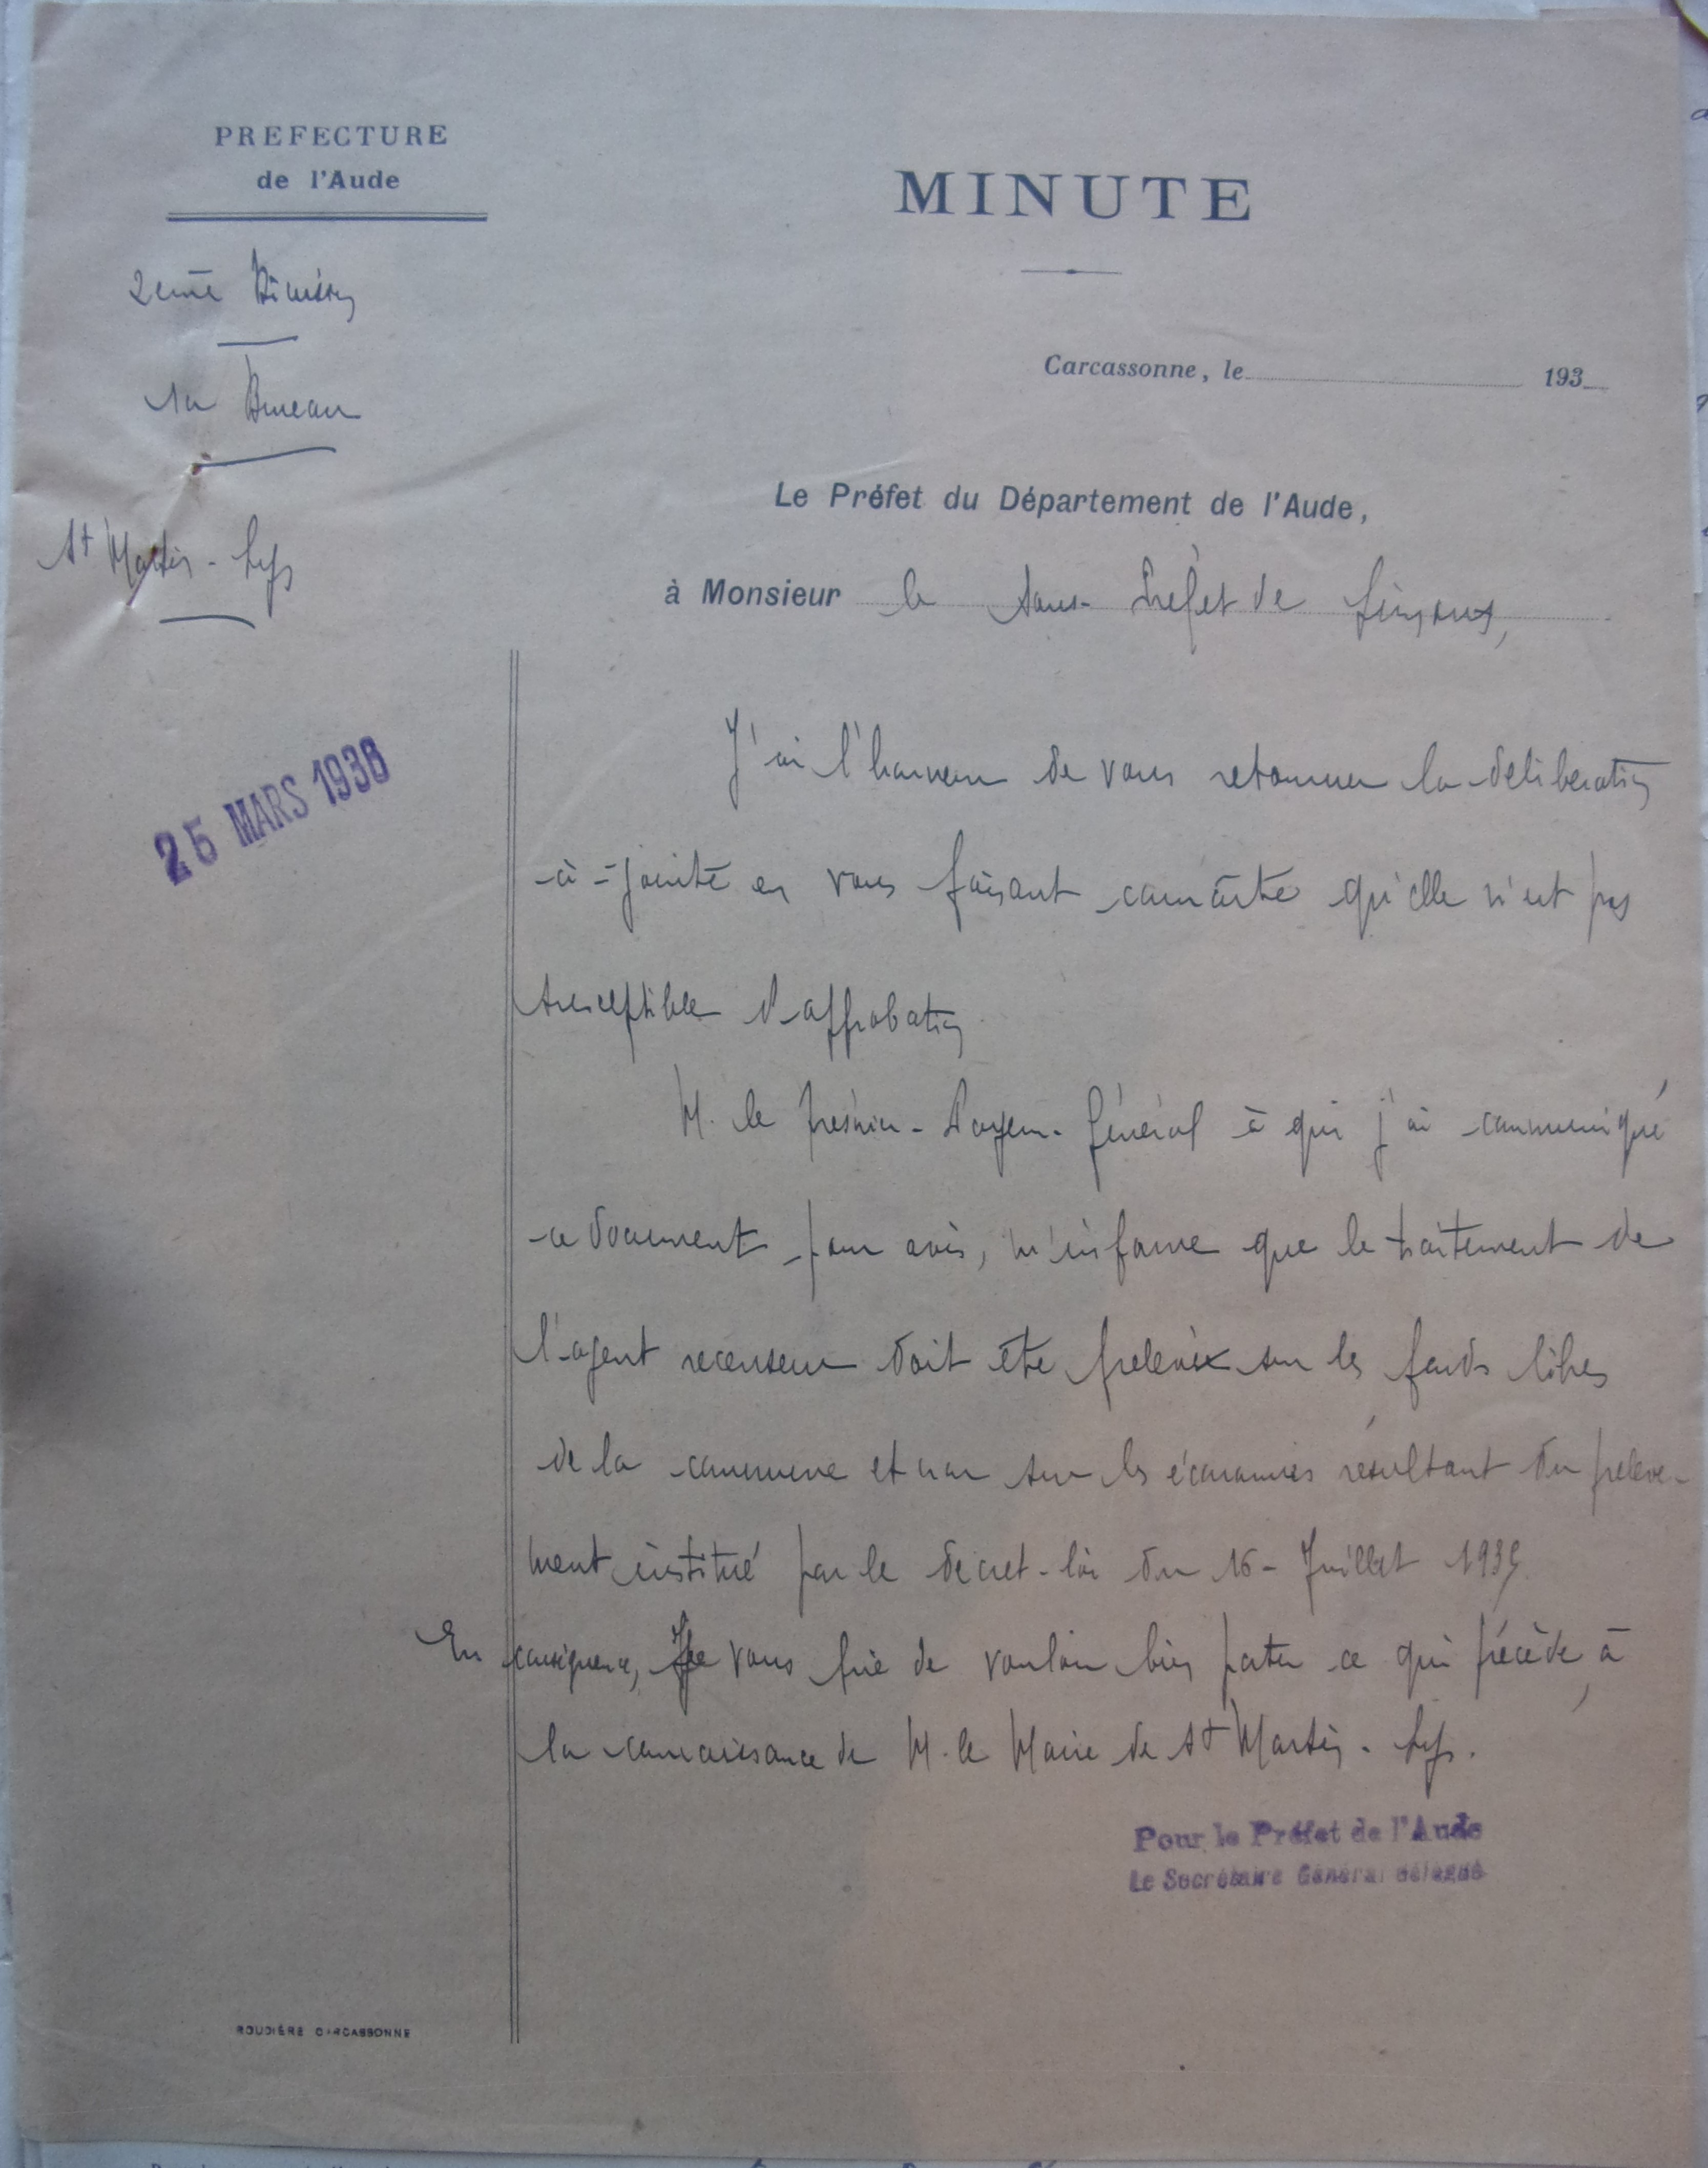 PREFECTURE
de l'Aude
MINUTE
2eme Division
1er Bureau
St Martin-Lys
Carcassonne, le 193
Le Préfet du Département de l'Aude,
à Monsieur le Sous-Préfet de Limoux,
25 MARS 1936
J'ai l'honneur de vous retourner la deliberation
ci-jointe en vous faisant connaitre qu'elle n'est pas
susceptible d'approbation
M. le Trésorier-Payeur-Général à qui j'ai communiqué
ce document pour avis, m'informe que le traitement de
l'agent recenseur doit être prelevé sur les fonds libres
de la commune et non sur les économies résultant du preleve-
ment institué par le decret-loi du 16-Juillet 1935
En conséquence, Je vous prie de vouloir bien porter ce qui précède, à
la connaissance de M. le Maire de St Martin-Lys.
Pour le Préfet de l'Aude
Le Secrétaire Général délégué
ROUDIÈRE CARCASSONNE